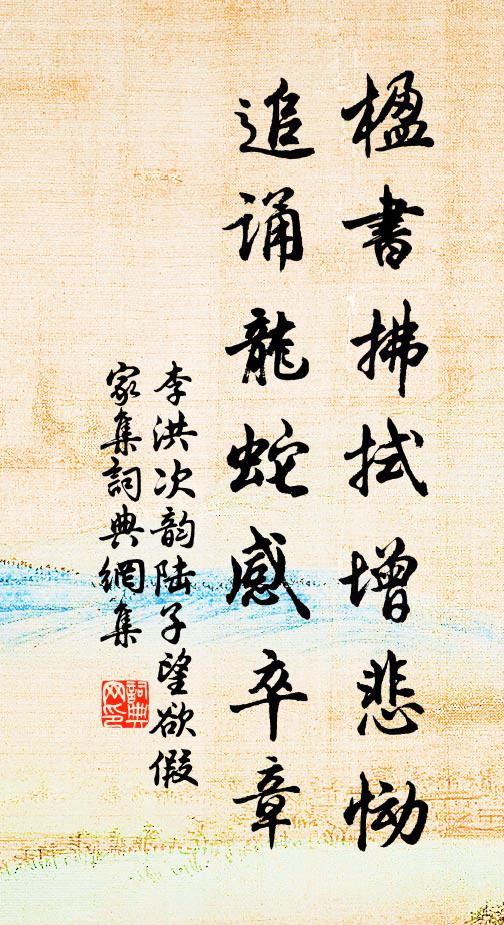 楹書拂拭增悲恸
追诵龍蛇感卒章
李洪次韵陆子望欲假
家集詞典網集
詞典网印